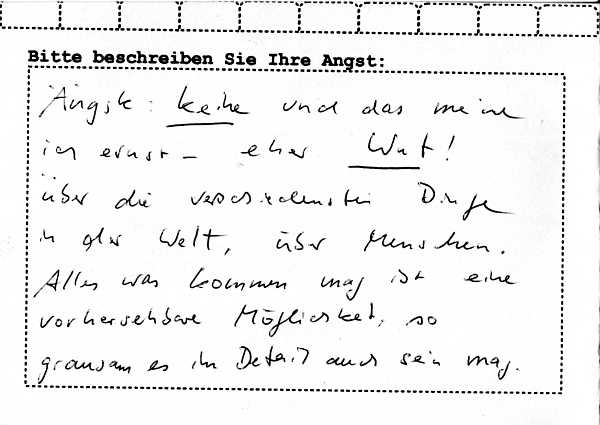 Bitte beschreiben Sie Ihre Angst:
Ängste: keine und das meine
ich ernst – eher Wut!
über die verschiedensten Dinge
in der Welt, über Menschen.
Alles was kommen mag ist eine
vorhersehbare Möglichkeit, so
grausam es im Detail auch sein mag.